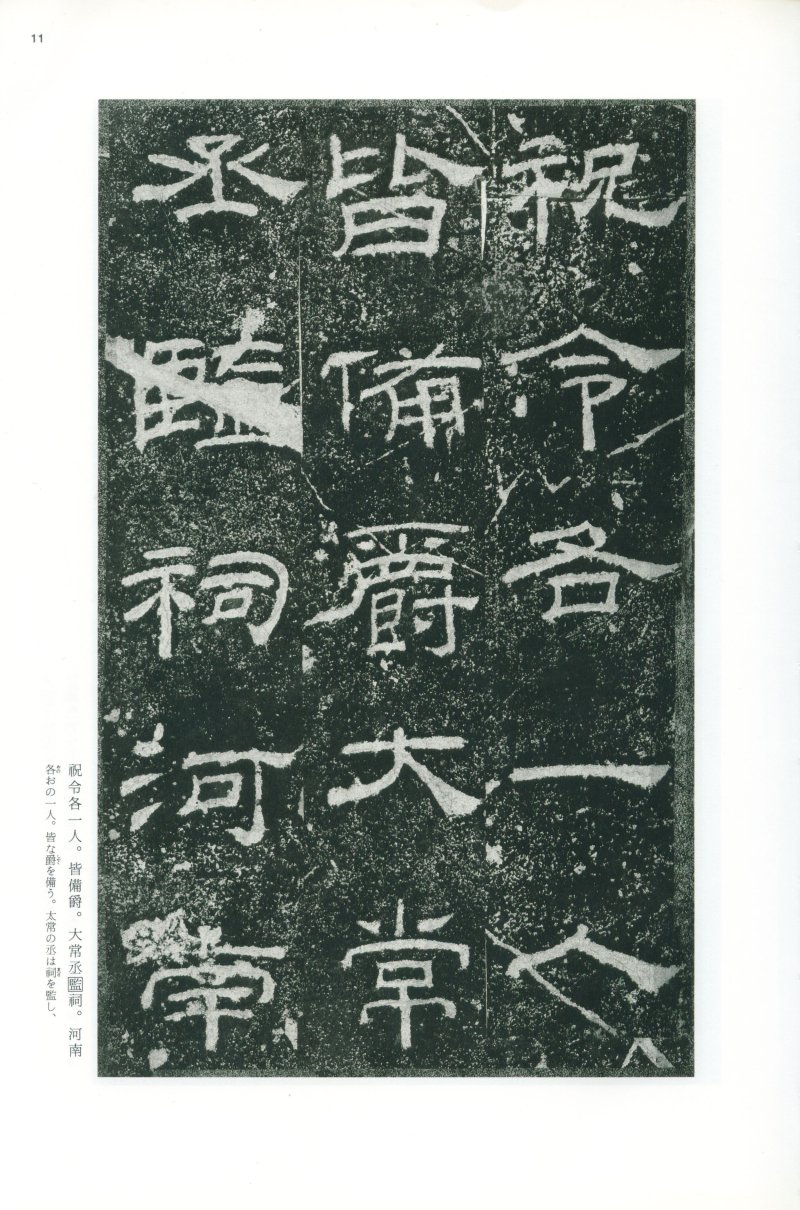 11
祝令各一人
皆備爵大常
丞監祠河南
祝令各一人。皆備爵。大常丞監祠。河南
各おの一人。皆な爵を備う。太常の丞は祠を監し、